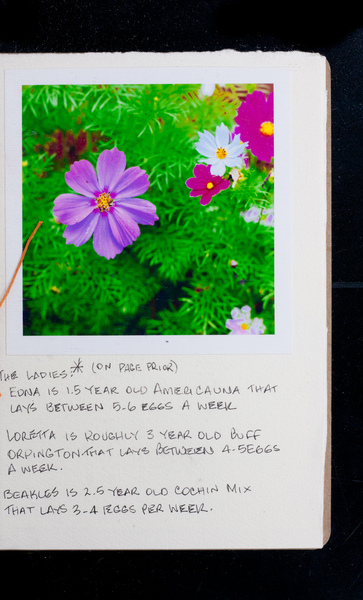 THE LADIES:* (ON PAGE PRIOR)
EDNA IS 1.5 YEAR OLD AMERICAUNA THAT
LAYS BETWEEN 5-6 EGGS A WEEK
LORETTA IS ROUGHLY 3 YEAR OLD BUFF
ORPINGTON THAT LAYS BETWEEN 4-5 EGGS
A WEEK.
BEAKLES IS 2.5 YEAR OLD COCHIN MIX
THAT LAYS 3-4 EGGS PER WEEK.